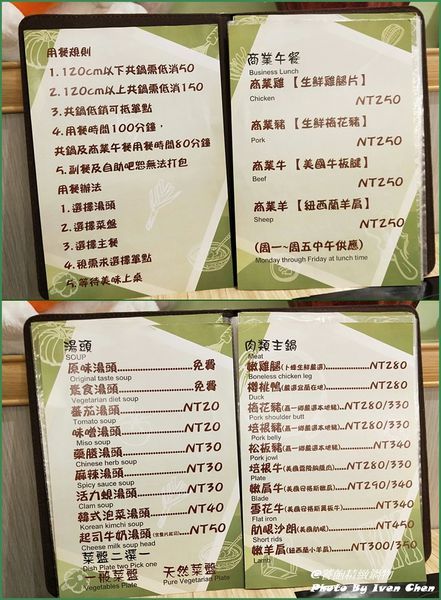 用餐規則
1.120cm以下共鍋需低消50
2.120cm以上共鍋需低消150
3.共鍋低銷可抵單點
4.用餐時間100分鐘,
共鍋及商業午餐用餐時間80分鐘
5.副餐及自助吧恕無法打包
用餐辦法
1.選擇湯頭
2.選擇菜盤
3.選擇主餐
4.視需求選擇單點
5.等待美味上桌
商業午餐
Business Lunch
商業雞【生鮮雞腿片】
Chicken NT250
商業豬【生鮮梅花豬】
Pork NT250
商業牛【美國牛板腱】
Beef NT250
商業羊【紐西蘭羊肩】
Sheep NT250
(周一~周五中午供應)
Monday through Friday at lunch time
湯頭
SOUP
原味湯頭...............免費
Original taste soup
素食湯頭...............免費
Vegetarian diet soup
蕃茄湯頭...............NT20
Tomato soup
味噌湯頭...............NT20
Miso soup
藥膳湯頭...............NT30
Chinese herb soup
麻辣湯頭...............NT30
Spicy sauce soup
活力蜆湯頭............NT30
Clam soup
韓式泡菜湯頭.........NT40
Korean kimchi soup
起司牛奶湯頭 NT50
Cheese milk soup
菜盤二選一
Dish Plate two Pick one
一般菜盤 天然菜盤
Vegetables Plate Pure Vegetarian Plate
肉類主鍋
Meat
嫩雞腿(卜蜂生鮮嚴選)......NT280
Boneless chicken leg
櫻桃鴨(嚴選宜蘭在地)......NT280
Duck
梅花豬(嘉一鄉嚴選本地豬)...NT280/330
Pork shoulder butt
培根豬(嘉一鄉嚴選本地豬)...NT280/330
Pork belly
松板豬(嘉一鄉嚴選本地豬)...NT340
Pork jowl
培根牛 NT280/330
Plate
嫩肩牛(美國安格斯嫩肩)...NT290/340
Blade
雪花牛(美國安格斯翼板牛)...NT340
Flat iron
肋眼沙朗(美國肋眼)......NT450
Short rids
嫩羊肩(紐西蘭小羊肩)......NT300/350
Lamb
Photo By Iven Chen